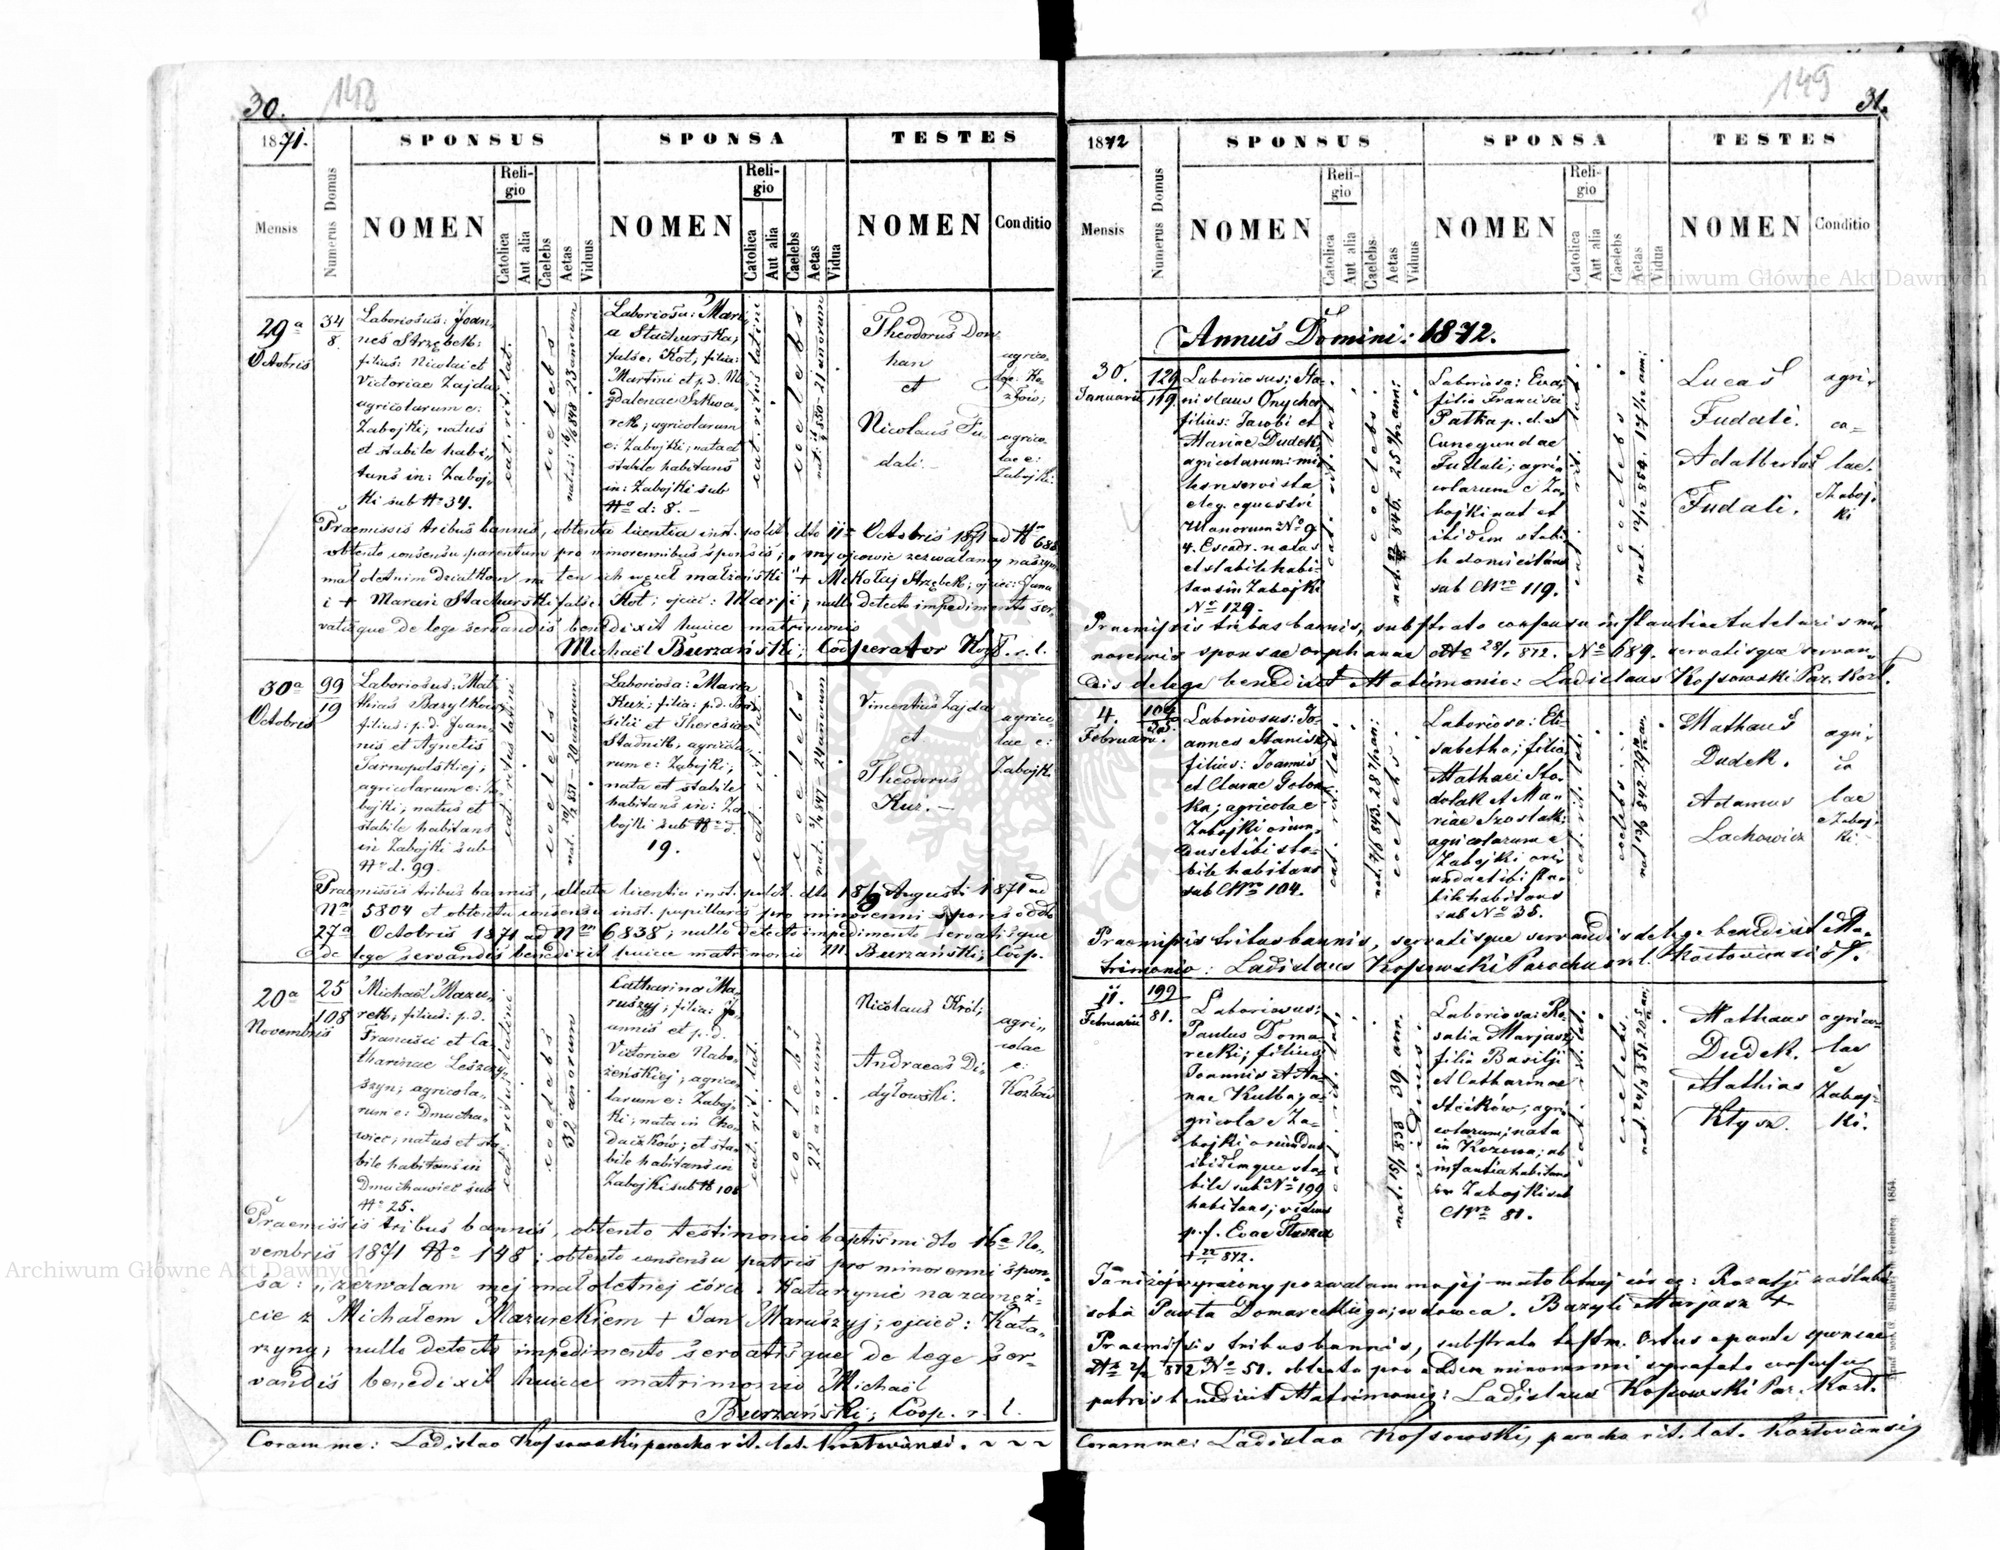 30.
148
1871.
SPONSUS
SPONSA
TESTES
Mensis
Numerus Domus
NOMEN
Religio
Catolica
Aut alia
Caelebs
Aetas
Viduus
NOMEN
Religio
Catolica
Aut alia
Caelebs
Aetas
Vidua
NOMEN
Conditio
29a
Octobris
34
8.
Laboriosus: Joan-
nes Strzębek:
filius: Nicolai et
Victoriae Zajda
agricolarum e:
Zabojki; natus
et stabile habi„
tans in: Zaboj-
ki sub No 34.
cat. rit. lat.
coelebs
23 annorum
Laboriosa: Mari-
a Stachurska,
false: Kot; filia:
Martini et p. d. Ma-
gdalenae Szkwa-
rek; agricolarum
e: Zabojki; nata et
stabile habitans
in: Zabojki sub
No d: 8. –
cat. ritus latini
coelebs
21 annorum
Theodorus Dow-
han
et
Nicolaus Fu-
dali.
agrico-
lae: Ko-
złów;
agrico-
lae e:
Zabojki.
Praemissis tribus bannis, obtenta licentia inst. polit. dto 11a Octobris 1871 ad No 688
obtento consensu parentum pro minorennibus sponsis; „my ojcowie zezwalamy naszym
małoletnim dziatkom na ten ich węzeł małżeński" + Mikołaj Strzębek; ojciec: Jana
i + Marcin Stachurski false: Kot; ojciec: Maryi; nullo detecto impedimento ser-
vatisque de lege servandis benedixit huicce matrimonio
Michaël Burzański; Cooperator Kozł. r. l.
30a
Octobris
99
19
Laboriosus: Mat-
thias Bazylkow
filius: p. d. Joan-
nis et Agnetis
Tarnopolskiej;
agricolarum e: Za-
bojki; natus et
stabile habitans
in Zabojki sub
No d. 99.
cat. ritus latini
coelebs
20 annorum
Laboriosa: Maria
Kuz: filia: p. d. Ba-
silii et Theresiae
Stadnik, agricola-
rum e: Zabojki;
nata et stabile
habitans in: Za-
bojki sub No d.
19.
cat. rit. lat.
coelebs
24 annorum
Vincentius Zajda
et
Theodorus
Kuz. –
agrico-
lae e:
Zabojk.
Praemissis tribus bannis, obtenta licentia inst. polit. dto 18/9 Augusti 1871 ad
Nm 5804 et obtento consensu inst. pupillaris pro minorenni sponso ddto
27a Octobris 1871 ad Nm 6838; nullo detecto impedimento servatisque
de lege servandis benedixit huicce matrimonio M. Burzański; Coop.
20a
Novembris
25
108
Michaël Mazu-
rek, filius: p. d.
Francisci et Ca-
tharinae Leszczy-
szyn; agricola-
rum e: Dmucha-
wiec; natus et sta-
bile habitans in
Dmuchawiec sub
No 25.
cat. ritus latini
coelebs
32 annorum
Catharina Ma-
ruszyj; filia: Jo-
annis et p. d.
Victoriae Nabo-
żeńskiej; agrico-
larum e: Zaboj-
ki; nata in Cho-
daczków; et sta-
bile habitans in
Zabojki sub No 108
cat. rit. lat.
coelebs
22 annorum
Nicolaus Król;
Andraeas Di-
dyłowski.
agri-
colae
e:
Kozłow
Praemissis tribus bannis, obtento testimonio baptismi dto 16a No-
vembris 1871 No 148; obtento consensu patris pro minorenni spon-
sa: „zezwalam mej małoletniej córce Katarzynie na zamęż-
cie z Michałem Mazurekiem + Jan Maruszyj; ojciec: Kata-
rzyny; nullo detecto impedimento servatisque de lege ser-
vandis benedixit huicce matrimonio Michaël
Burzański; Coop. r. l.
Coram me: Ladislao Kossowski, parocho rit. lat. Kozłoviensi. ~ ~ ~
149
31.
1872
SPONSUS
SPONSA
TESTES
Mensis
Numerus Domus
NOMEN
Religio
Catolica
Aut alia
Caelebs
Aetas
Viduus
NOMEN
Religio
Catolica
Aut alia
Caelebs
Aetas
Vidua
NOMEN
Conditio
Annus Domini: 1872.
30.
Januarii
129
119.
Laboriosus; Sta-
nislaus Onyches
filius: Jacobi et
Mariae Dudek,
agricolarum: mi-
les in servi sta
c leg. equestri
Ulanorum No 9
4. Escadr. natus
et stabile habi-
tans in Zabojki
No 129.
coelebs
Laboriosa: Eva,
filia Francisci
Patka p. d. et
Cunegundae
Fudali; agri-
colarum e Za-
bojki nat et
ibidem stabi-
le domicilians
sub Nro 119.
coelebs
Lucas
Fudali.
Adalbertus
Fudali.
agri-
co-
lae.
Zaboj-
ki
Praemissis tribus bannis, substrato consensu instantiae tutelaris mi-
norennis sponsae orphanae dto 28/1 872. No 689. servatisque servan-
dis de lege benedixit Matrimonio: Ladislaus Kossowski Par. Kozł.
4.
Februarii.
104
35.
Laboriosus: Jo-
annes Stanisz,
filius: Joannis
et Clarae Golon-
ka; agricola e
Zabojki oriun-
dus et ibi sta-
bile habitans
sub Nro 104.
coelebs
Laboriosa: Eli-
sabetha; filia
Mathaei Sto-
dolak et Ma-
riae Szostak;
agricolarum e
Zabojki ori-
unda et ibi sta-
bile habitans
sub No 35.
cat. rit. lat.
coelebs
Mathaus
Dudek.
Adamus
Lachowicz
agri-
co
lae
e Zaboj-
ki.
Praemissis tribus bannis, servatisque servandis de lege benedixit Ma-
trimonio: Ladislaus Kossowski Parochus r. l. Kozłoviensis.
11.
Februarii
199
81.
Laboriosus;
Paulus Doma-
recki; filius
Joannis et An-
nae Kulba; a-
gricola e Za-
bojki oriundus
ibidemque sta-
bile sub No 199
habitans; viduus
p. f. Evae Staszek
viduus
39. ann.
Laboriosa: Ro-
salia Marjasz
filia Basilii
et Catharinae
Steckow; agri-
colarum; nata
in Kozowa; ab
infantia habitans
in Zabojki sub
Nro 81.
cat. rit. lat.
coelebs.
Mathaus
Dudek.
Mathias
Ktysz.
agrico-
lae
e
Zaboj-
ki.
Ja niżej wyrażony pozwalam mojej małoletniej córce: Rozalji zaślubić
sobie Pawła Domareckiego; wdowca. Bazyli Marjasz +
Praemissis tribus bannis, substrato testm. Ortus e parte sponsae
dto 2/2 872 No 51. obtento pro eadem minorenni suprafato consensu
patris benedixit Matrimonio: Ladislaus Kossowski Par. Kozł.
Coram me: Ladislao Kossowski, parocho rit. lat. Kozłoviensi
Archiwum Główne Akt Dawnych
Archiwum Główne Akt Dawnych